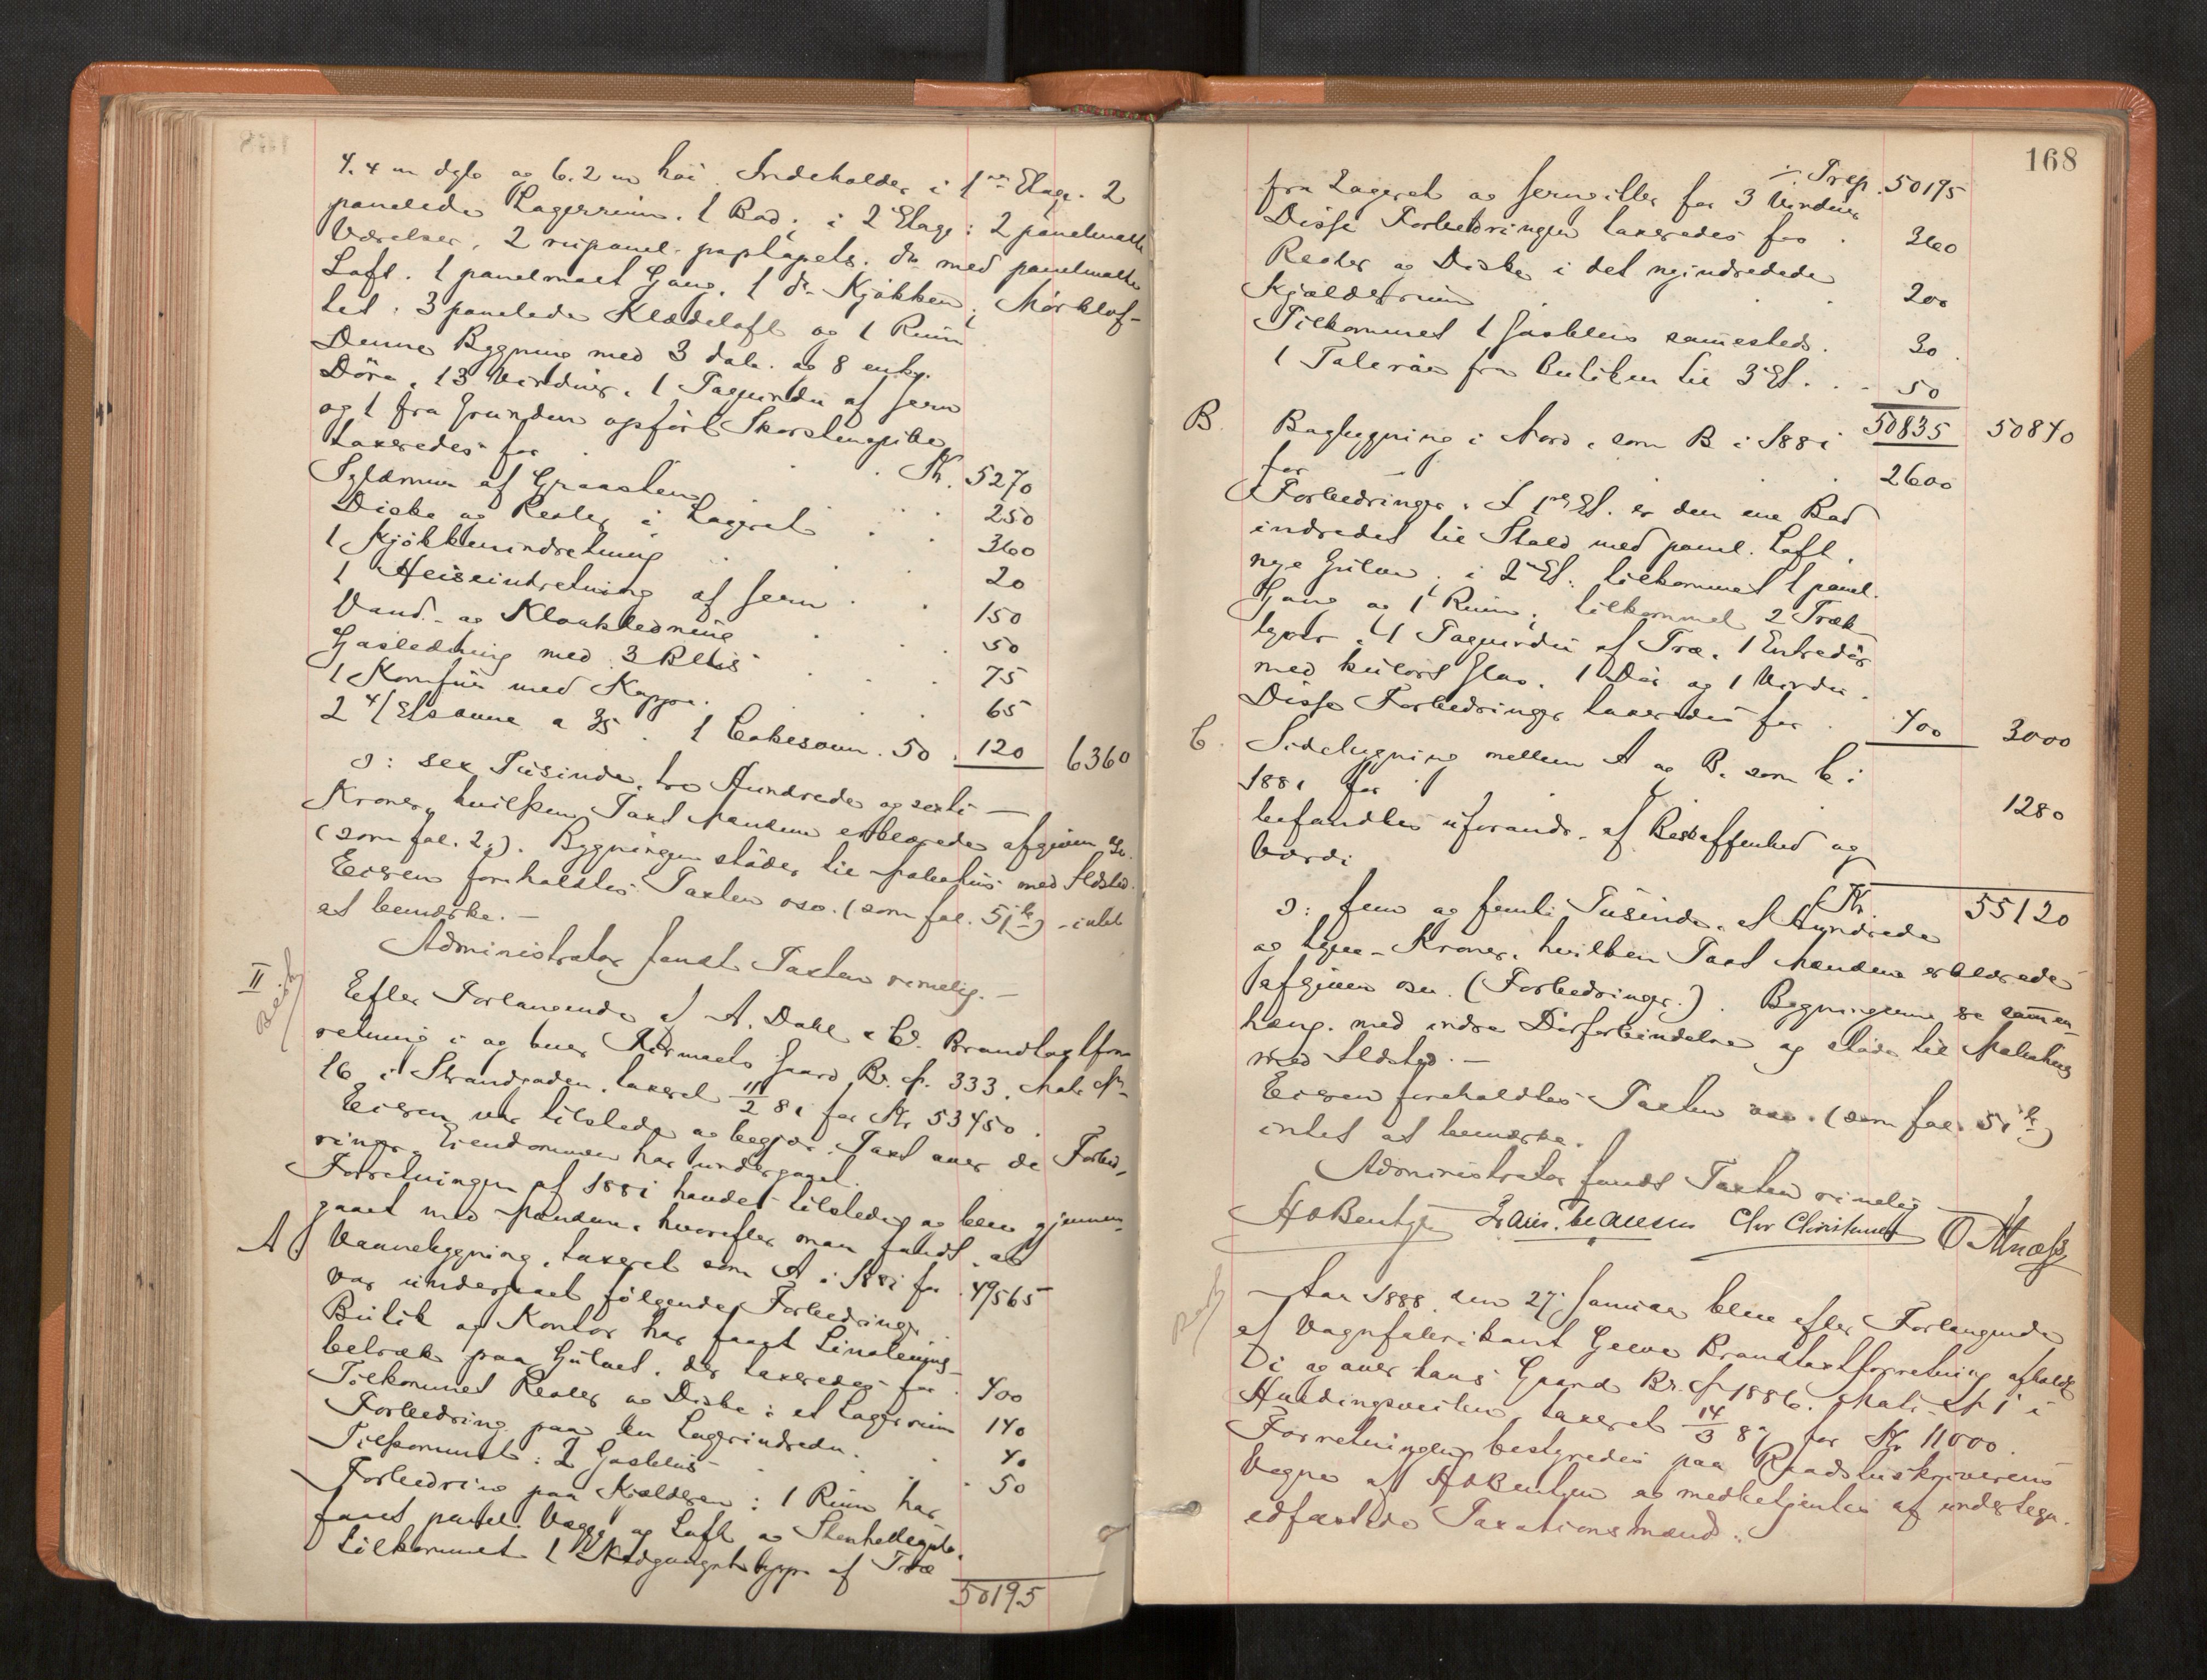 4.4 m dyb og 6.2 m høi. Indeholder i 1ste Etage. 2
panelede Lagerrum. 1 Bod; i 2 Etage: 2 panelmalte
Værelser, 2 rupanel. paptapets. do med panelmalte
Loft. 1 panelmalt Gang. 1 do Kjøkken; Mørklof-
tet: 3 panelede Klædeloft og 1 Rum
Denne Bygning med 3 dob. og 8 enky.
Døre, 13 Vinduer, 1 Tagvindu af Jern
og 1 fra Grunden opført Skorstenspibe
taxeredes for . Kr. 5270
Syldmur af Graasten . 250
Diske og Reoler i Lageret . 360
1 Kjøkkenindretning . 20
1 Heiseindretning af Jern . 150
Vand- og Kloakledning . 50
Gasledning med 3 Blus . 75
1 Komfur med Kappe . 65
2 4/Etsovne a 35 . 1 Cokesovn . 50 . 120 6360
ɔ: sex Tusinde, tre Hundrede og sexti —
Kroner, hvilken Taxt Mændene erklærede afgiven
(som fol. 2). Bygningen støder til Nabohus med Ildsted.
Eieren foreholdtes Taxten osv. (som fol. 51) - intet
at bemærke. —
Administrator fandt Taxten rimelig. —
II
Efter Forlangende af A. Dahl & Co. Brandtaxtfor-
retning i og over Gaard Br. No. 333, Matr. No
16 i Strandgaden, taxeret 11/2 81 for Kr 53450.
Eieren var tilstede og begjær. Taxt over de Forbed-
ringer, Eiendommen har undergaaet.
Forretningen af 1881 havdes tilstede og blev gjennem-
gaaet med Mændene, hvorefter man fandt, at
A Vaanebygning, taxeret som A i 1881 for . 49565
var undergaaet følgende Forbedringer.
Butik og Kontor har faaet Linoleums-
betræk paa Gulvet, der taxeredes for . 400
Tilkommet Reoler og Diske i et Lagerrum 140
Forbedring paa en Lagerindredn. . 40
Tilkommet: 2 Gasblus . 50
Forbedring paa Kjelderen: 1 Rum har
faaet panel. Vægge og Loft og Stenhellegulv.
Tilkommet 1 Nedgangstrappe af Træ
50195
168
Trsp. 50195
fra Lageret og Jernvitter for 3 Vinduer
Disse Forbedringer taxeredes for . 360
Reoler og Diske i det nyindredede
Kjælderrum . 200
Tilkommet 1 Gasblus sammesteds . 30
1 Talerør fra Butiken til 3 Et. . 50
50835 50840
B. Bagbygning i Nord, som B i 1881
for . 2600
Forbedringer. I 1ste Et. er den ene Bod
indredet til Stald med panel. Loft,
nye Gulve; i 2 Et: tilkommet 1 panel.
Gang og 1 Rum; tilkommet 2 Træ-
trapper, 4 Tagvindu af Træ, 1 Entredør
med kulørt Glas, 1 Dør og 1 Vindu.
Disse Forbedringer taxeredes for . 400 3000
C. Sidebygning mellem A og B, som C i
1881 for . 1280
befandtes uforandr. af Beskaffenhed og
Værdi
Kr 55120
ɔ: fem og femti Tusinde, et Hundrede
og tyve - Kroner, hvilken Taxt Mændene erklærede
afgiven osv. (Forbedringer.). Bygningerne er sammen-
hæng. med indre Dørforbindelse og støder til Nabohus
med Ildsted. —
Eieren foreholdtes Taxten osv. (som fol. 51)
intet at bemærke.
Administrator fandt Taxten rimelig —
HBentzen Chr Christensen
Aar 1888, den 27. Januar blev efter Forlangende
af Vagnfabrikant Brandtaxtforretning afholdt
i og over hans Gaard Br. No 1886, Matr. No 1 i
taxeret 14/3 87 for Kr 11000.
Forretningen bestyredes paa Raadstuskriverens
Vegne af HBentzen og medbetjentes af undertegn.
edfæstede Taxationsmænd: